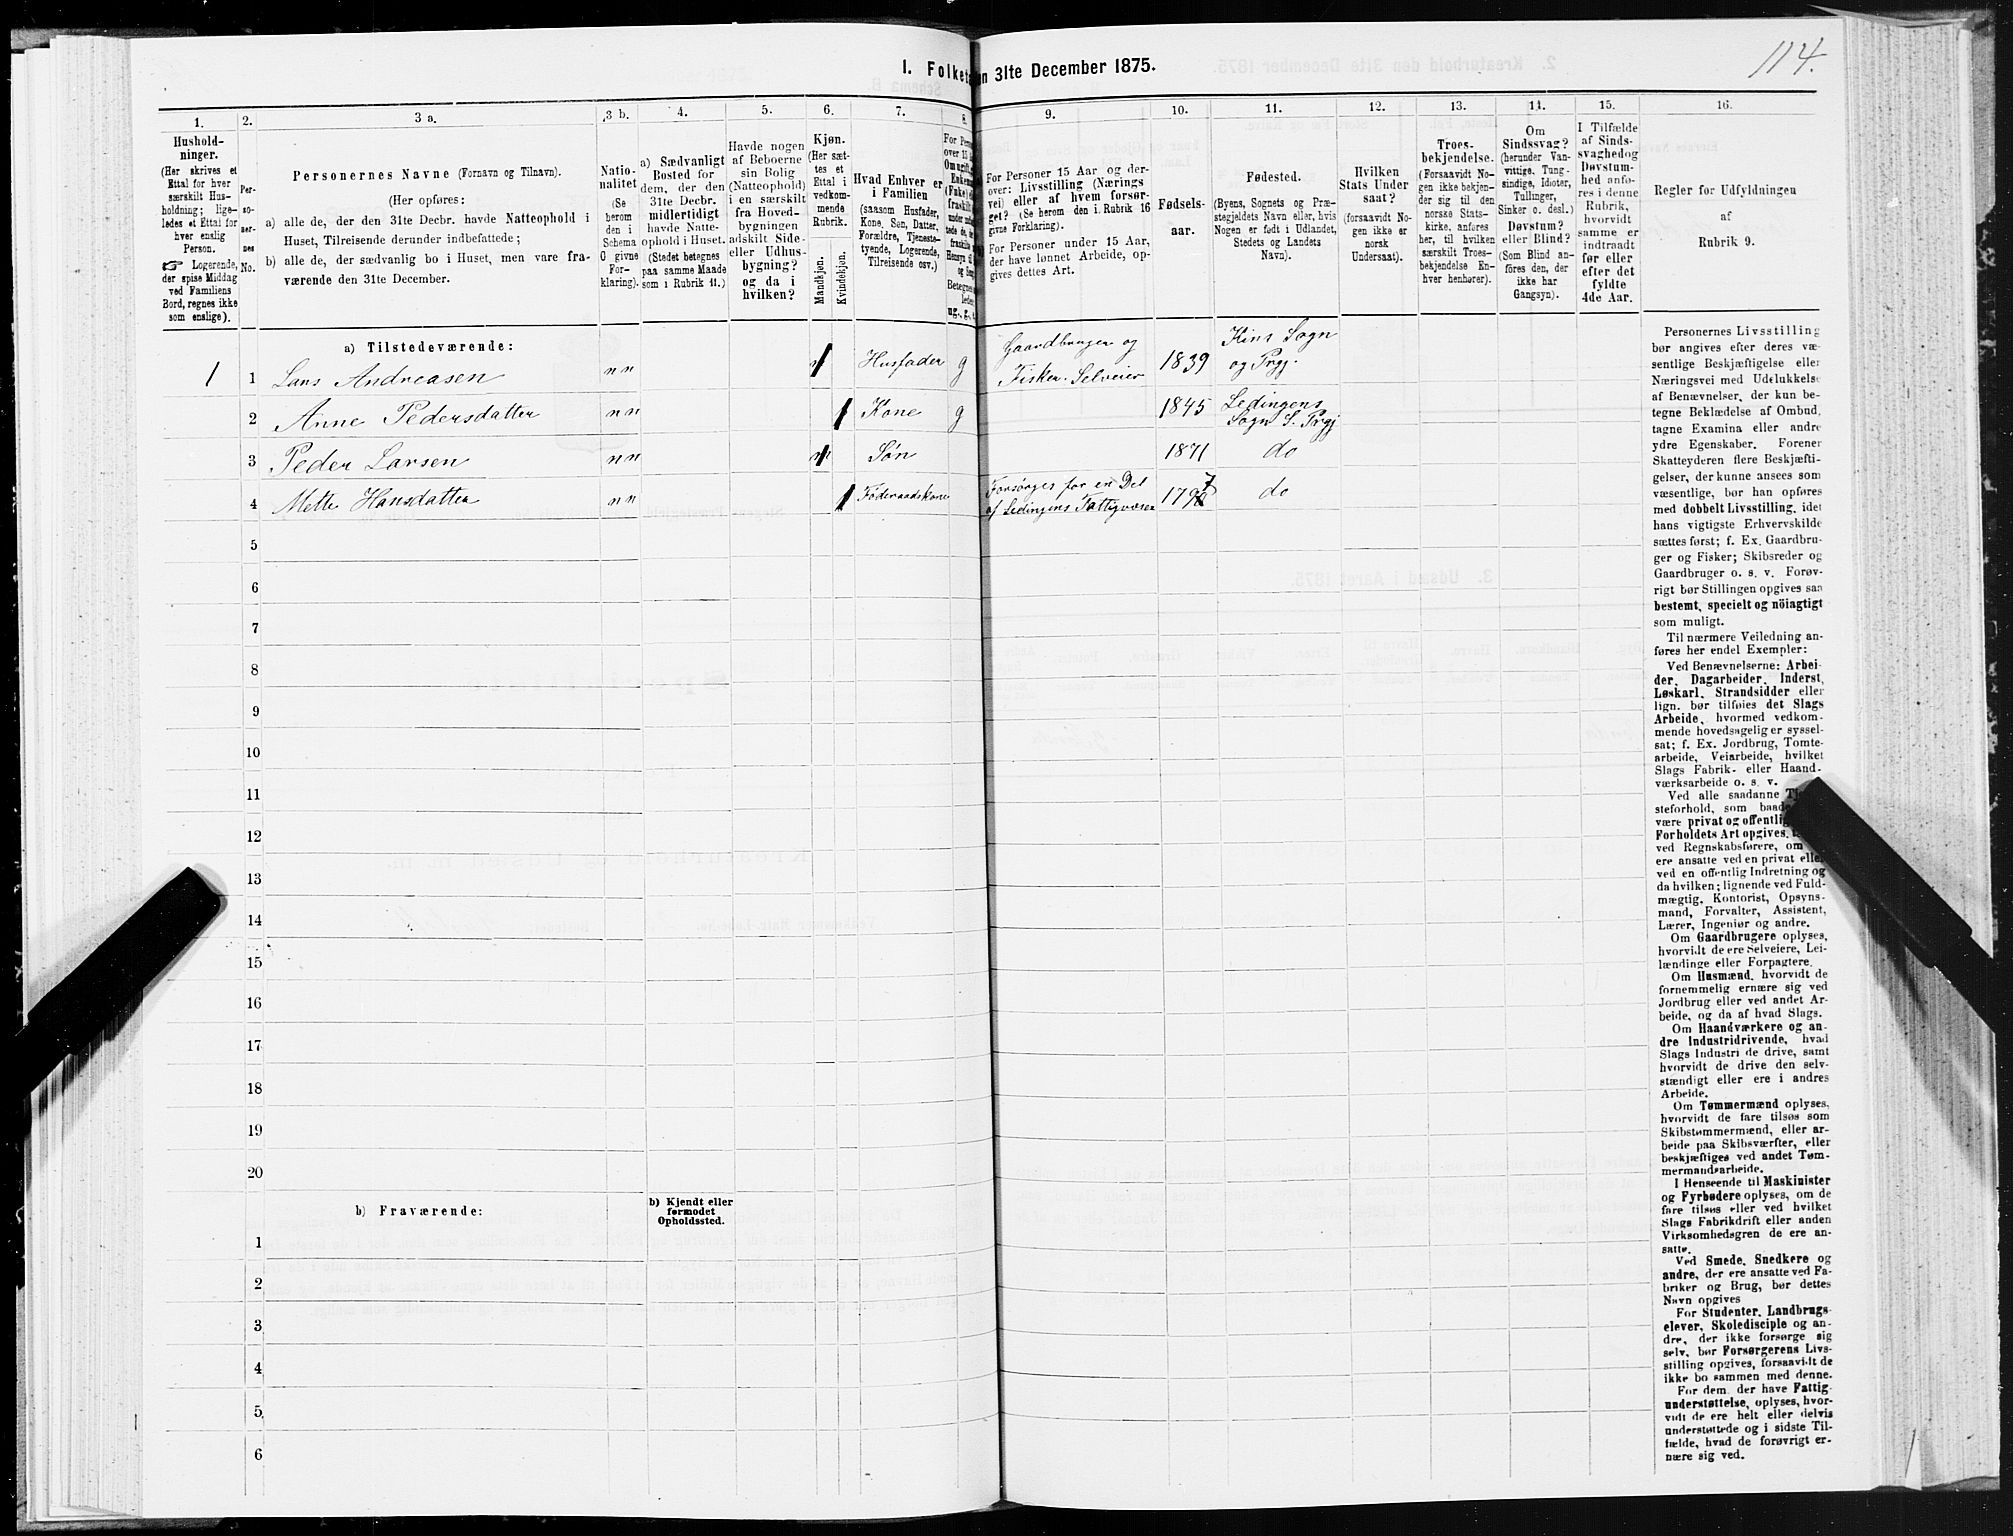 114.
I. Folketæ
en 31te December 1875.
1.
2.
3 a.
3 b.
4.
5.
6.
7.
8.
9.
10.
11.
12.
13.
14.
15.
16.
Hushold-
ninger.
(Her skrives et
Ettal for hver
særskilt Hus-
holdning; lige-
ledes et Ettal for
hver enslig
Person.
☞ Logerende,
der spise Middag
ved Familiens
Bord, regnes ikke
som enslige).
Per-
so-
ner-
nes
No.
Personernes Navne (Fornavn og Tilnavn).
(Her opføres:
a) alle de, der den 31te Decbr. havde Natteophold i
Huset, Tilreisende derunder indbefattede;
b) alle de, der sædvanlig bo i Huset, men vare fra-
værende den 31te December.
Natio-
nalitet
(Se
herom
den i
Schema
G givne
For-
klaring).
a) Sædvanligt
Bosted for
dem, der den
31te Decbr.
midlertidigt
havde Natte-
ophold i Huset.
(Stedet betegnes
paa samme Maade
som i Rubrik 11.)
Havde nogen
af Beboerne
sin Bolig
(Natteophold)
i en særskilt
fra Hoved-
bygningen
adskilt Side-
eller Udhus-
bygning?
og da i
hvilken?
Kjøn.
(Her sæt-
tes et
Ettal i
vedkom-
mende
Rubrik.
Mandkjøn.
Kvindekjøn.
Hvad Enhver er
i Familien
(saasom Husfader,
Kone, Søn, Datter,
Forældre, Tjeneste-
tyende, Logerende,
Tilreisende osv.)
For Pers
over 15
Om ugift,
Enkem
(Fnke)
fraskilt
under
tede de,
fraskilte
Hensyn til
og Seng
Betegnes
ledes
ug., g., e.
For Personer 15 Aar og der-
over: Livsstilling (Nærings
vei) eller af hvem forsør-
get? (Se herom den i. Rubrik 16
givne Forklaring).
For Personer under 15 Aar,
der have lønnet Arbeide, op-
gives dettes Art.
Fødsels-
aar.
Fødested.
(Byens, Sognets og Præ-
stegjeldets Navn eller, hvis
Nogen er født i Udlandet,
Stedets og Landets
Navn).
Hvilken
Stats Under
saat?
(forsaavidt No-
gen ikke er
norsk
Undersaat).
Troes-
bekjendelse.
(Forsaavidt No-
gen ikke bekjen-
der sig til den
norske Stats-
kirke, anføres
her, til hvilken
særskilt Troes-
bekjendelse En-
hver henhører).
Om
Sindssvag?
(herunder Van-
vittige, Tung-
sindige, Idioter,
Tullinger,
Sinker o. desl.)
Døvstum?
eller Blind?
(Som Blind an-
føres den, der
ikke har
Gangsyn).
I Tilfælde
af Sinds-
svaghedog
Døvstum-
hed anfø-
res i denne
Rubrik,
hvorvidt
samme er
indtraadt
før eller
efter det
fyldte
4de Aar.
Regler for Udfyldningen
af
Rubrik 9.
a) Tilstedeværende:
1 1 Lars Andreasen nn 1 Husfader g Gaardbruger og Fisker. Selveier 1839 Kins Sogn og Prgj.
2 Anne Pedersdatter nn 1 Kone g 1845 Ledingens Sogn S. Prgj
3 Peder Larsen nn 1 Søn 1871 do
4 Mette Hansdatter nn 1 Føderaadskone Forsørges for en Del af Ledingens Fattigvæsen 1797 do
5
6
7
8
9
10
11
12
13
14
15
16
17
18
19
20
b) Fraværende:
b) Kjendt eller
formodet
Opholdssted.
1
2
3
4
5
6
Personernes Livsstilling
bør angives efter deres væ-
sentlige Beskjæftigelse eller
Næringsvei med Udelukkelse
af Benævnelser, der kun be-
tegne Beklædelse af Ombud,
tagne Examina eller andre
ydre Egenskaber. Forener
Skatteyderen flere Beskjæfti-
gelser, der kunne ansees som
væsentlige, bør han opføres
med dobbelt Livsstilling, idet
hans vigtigste Erhvervskilde
sættes først; f. Ex. Gaardbru-
ger og Fisker; Skibsreder og
Gaardbruger o. s. v. Forøv-
rigt bør Stillingen opgives saa
bestemt, specielt og nöiagtigt
som muligt.
Til nærmere Veiledning an-
føres her endel Exempler:
Ved Benævnelserne: Arbei-
der, Dagarbeider, Inderst,
Løskarl, Strandsidder eller
lign. bør tilføies det Slags
Arbeide, hvormed vedkom-
mende hovedsagelig er syssel-
sat; f. Ex. Jordbrug, Tomte-
arbeide, Veiarbeide, hvilket
Slags Fabrik- eller Haand-
værksarbeide o. s. v.
Ved alle saadanne Tj
steforhold, som baade
være privat og offentlig
Forholdets Art opgives,
ved Regnskabsførere, om
ere ansatte ved en privat eller
ved en offentlig Indretning og
da hvilken; lignende ved Fuld-
mægtig, Kontorist, Opsyns-
mand, Forvalter, Assistent,
Lærer, Ingeniør og andre.
Om Gaardbrugere oplyses,
hvorvidt de ere Selveiere, Lei-
lændinge eller Forpagtere.
Om Husmænd, hvorvidt de
fornemmelig ernære sig ved
Jordbrug eller ved andet Ar-
beide, og da af hvad Slags.
Om Haandværkere og an-
dre Industridrivende, hvad
Slags Industri de drive, samt
hvorvidt de drive den selv-
stændigt eller ere i andres
Arbeide.
Om Tømmermænd oplyses,
hvorvidt de fare tilsøs som
Skibstømmermænd, eller ar-
beide paa Skibsværfter, eller
beskjæftiges ved andet Tøm-
mermandsarbeide.
I Henseende til Maskinister
og Fyrbødere oplyses, om de
fare tilsøs eller ved hvilket
Slags Fabrikdrift eller anden
Virksomhedsgren de ere an-
satte.
Ved Smede, Snedkere og
andre, der ere ansatte ved Fa-
briker og Brug, bør dettes
Navn opgives
For Studenter, Landbrugs-
elever, Skoledisciple og an-
dre, der ikke forsørge sig
selv, bør Forsørgerens Livs-
stilling opgives, forsaavidt de
ikke bo sammen med denne.
For dem, der have Fattig-
understøttelse, oplyses, hvor-
vidt de ere helt eller delvis
understøttede og i sidste Til-
fælde, hvad de forøvrigt er-
nære sig ved.